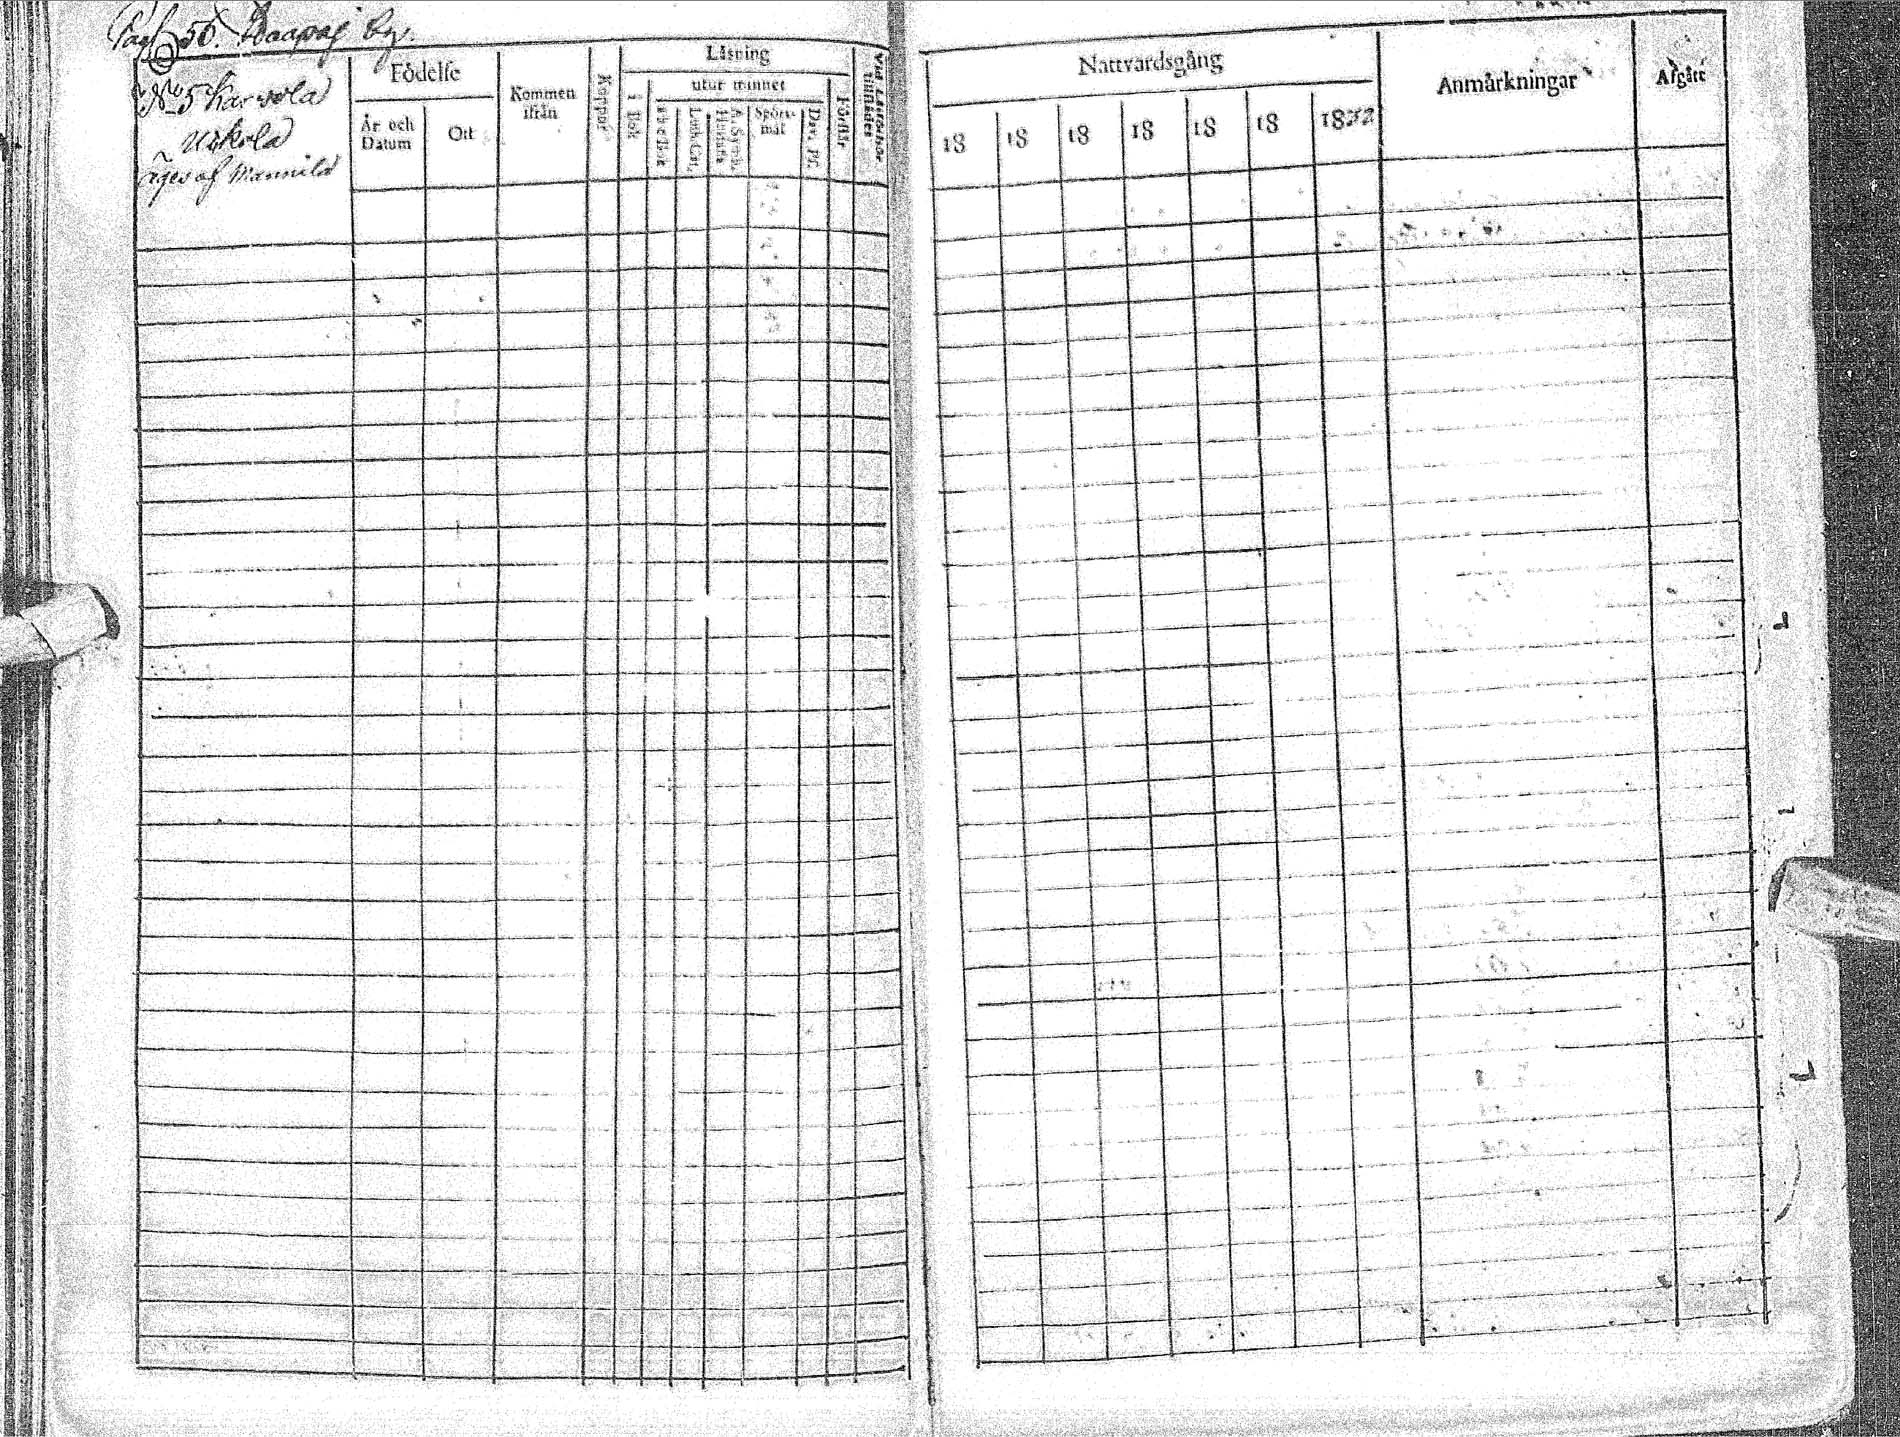 Pag. 55. Haapaj by.
No 5 Karvola
Uskola
äges af Mannila
Födelse
År och Datum
Ort
Kommen ifrån
Koppor
Läsning
i Bok
utur minnet
a b c Bok
Luth. Cat.
A. Symb. Hustafla
Spörsmål
Dav. Ps.
Förstår
Vid Läsförhör tillstädes
Nattvardsgång
18 18 18 18 18 18 1832
Anmärkningar
Afgått